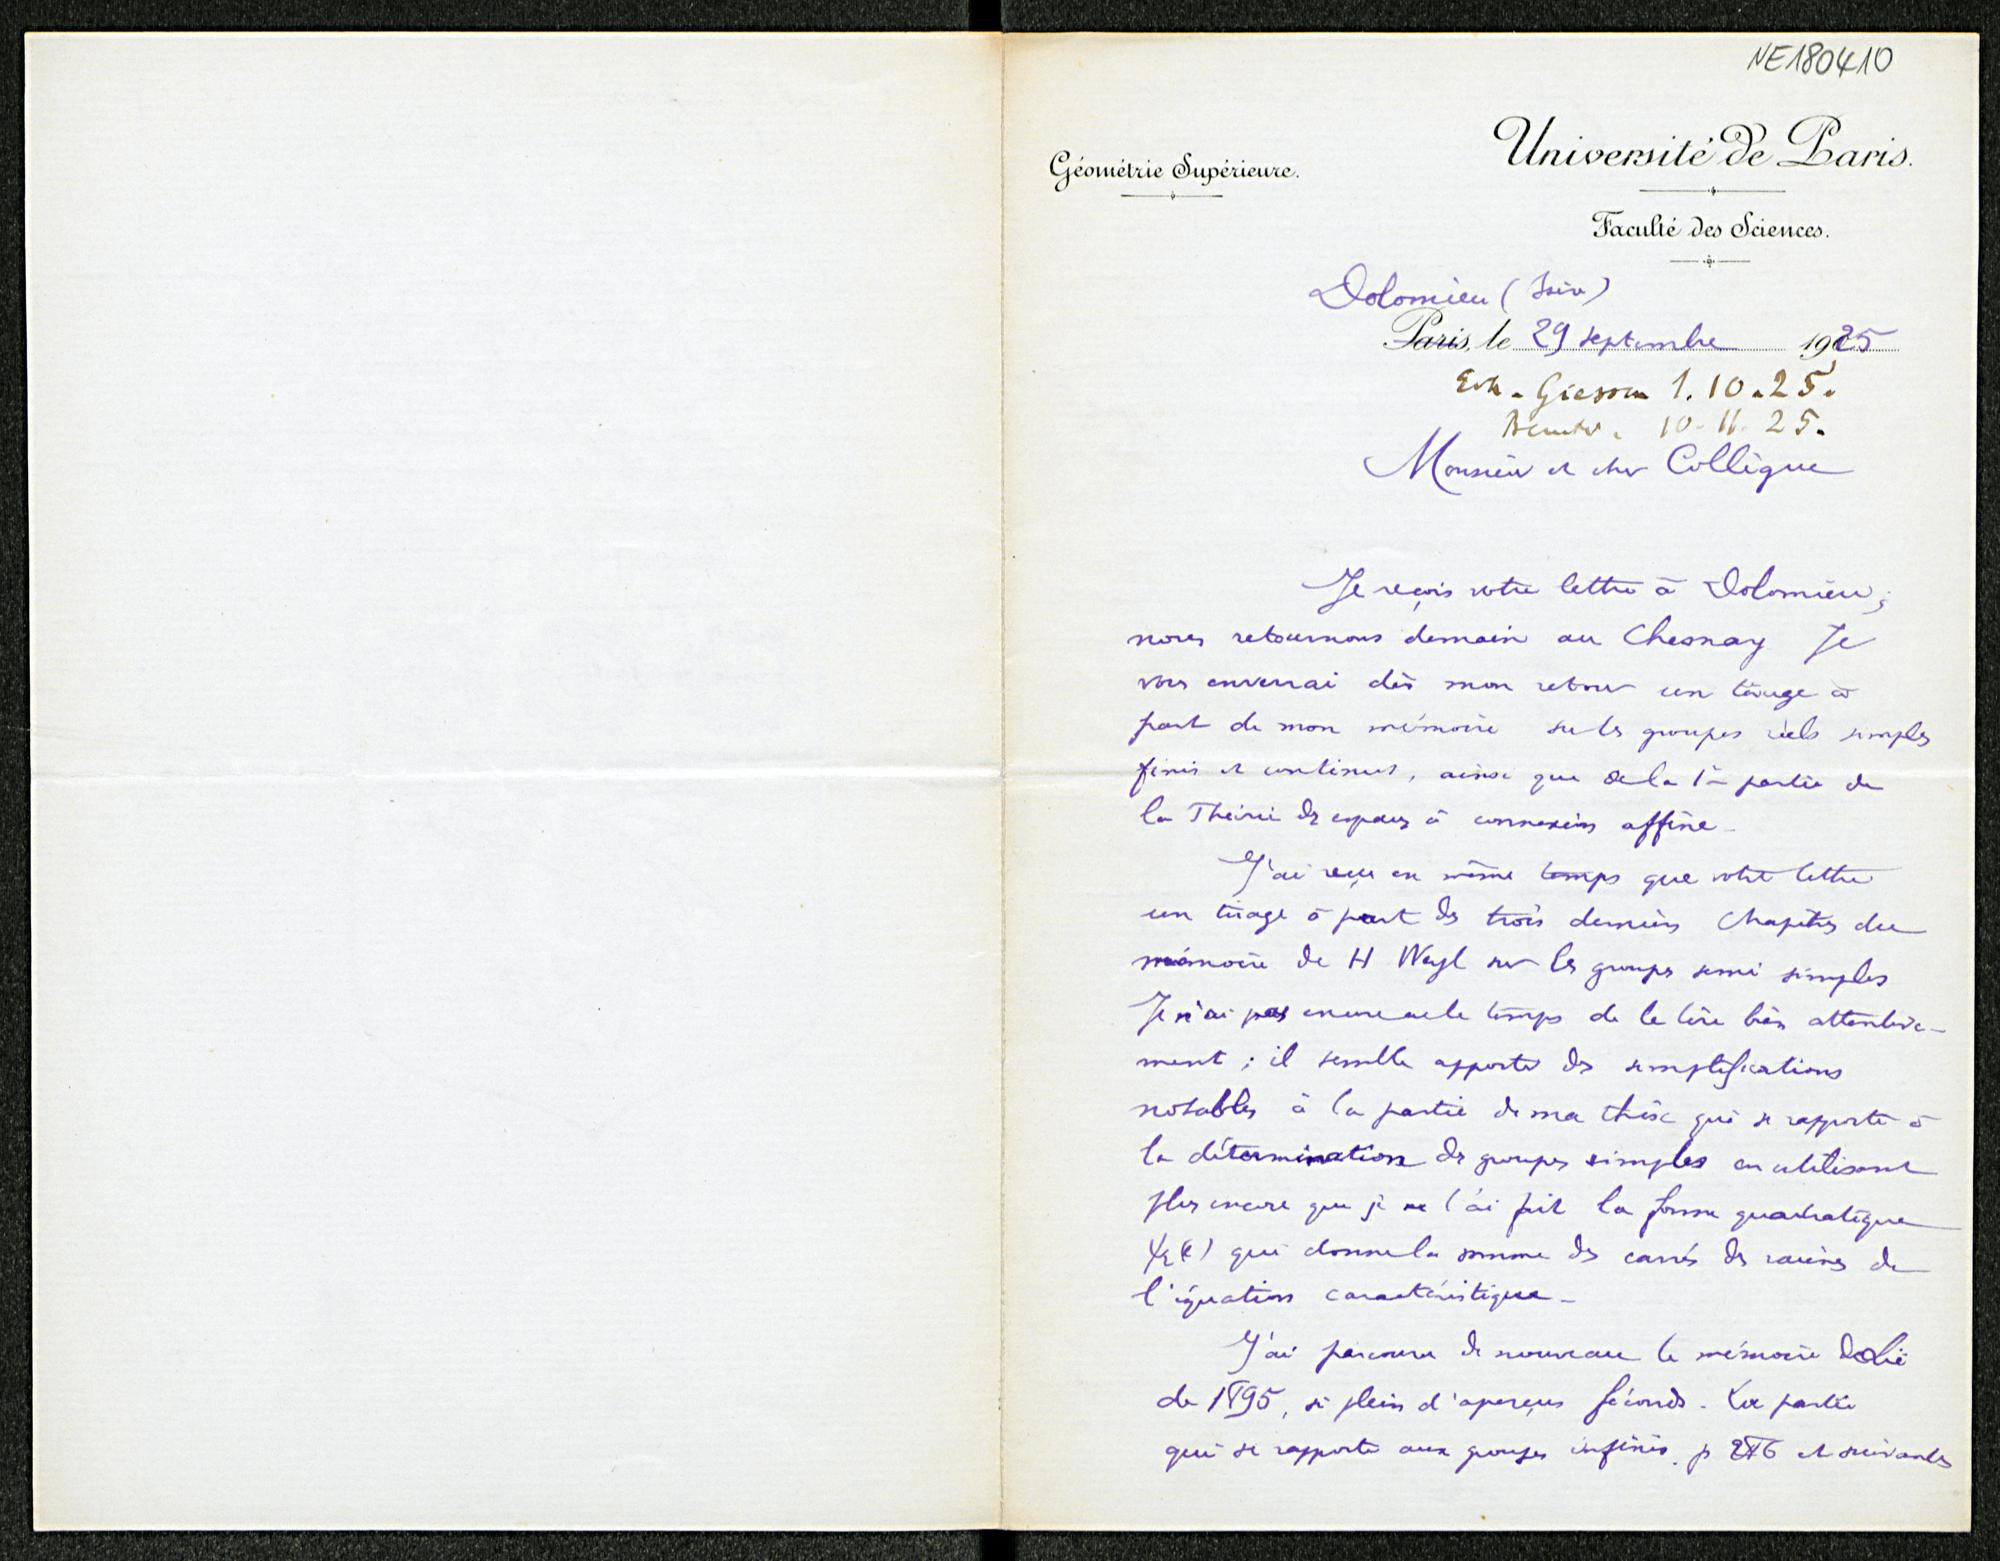 NE180410
Géométrie Supérieure.
Université de Paris.
Faculté des Sciences.
Dolomieu (Isère)
Paris, le 29 septembre 1925
Erh. Giessen 1. 10. 25.
10. 11. 25.
Monsieur et cher Collègue
Je reçois votre lettre à Dolomieu;
nous retournons demain au Chesnay Je
vous enverrai dès mon retour un tirage à
part de mon mémoire sur les groupes réels simples
finis et continus, ainsi que de la 1re partie de
la Théorie des espaces à connexion affine.
J'ai reçu en même temps que votre lettre
un tirage à part des trois derniers chapitres du
mémoire de H Weyl sur les groupes semi simples
Je n'ai pas encore eu le temps de le lire bien attentive-
ment; il semble apporter des simplifications
notables à la partie de ma thèse qui se rapporte à
la détermination des groupes simples en utilisant
plus encore que je ne l'ai fait la forme quadratique
ψ2(e) qui donne la somme des carrés des racines de
l'équation caractéristique.
J'ai parcouru de nouveau le mémoire de Lie
de 1895, si plein d'aperçus féconds. La partie
qui se rapporte aux groupes infinis, p 286 et suivantes